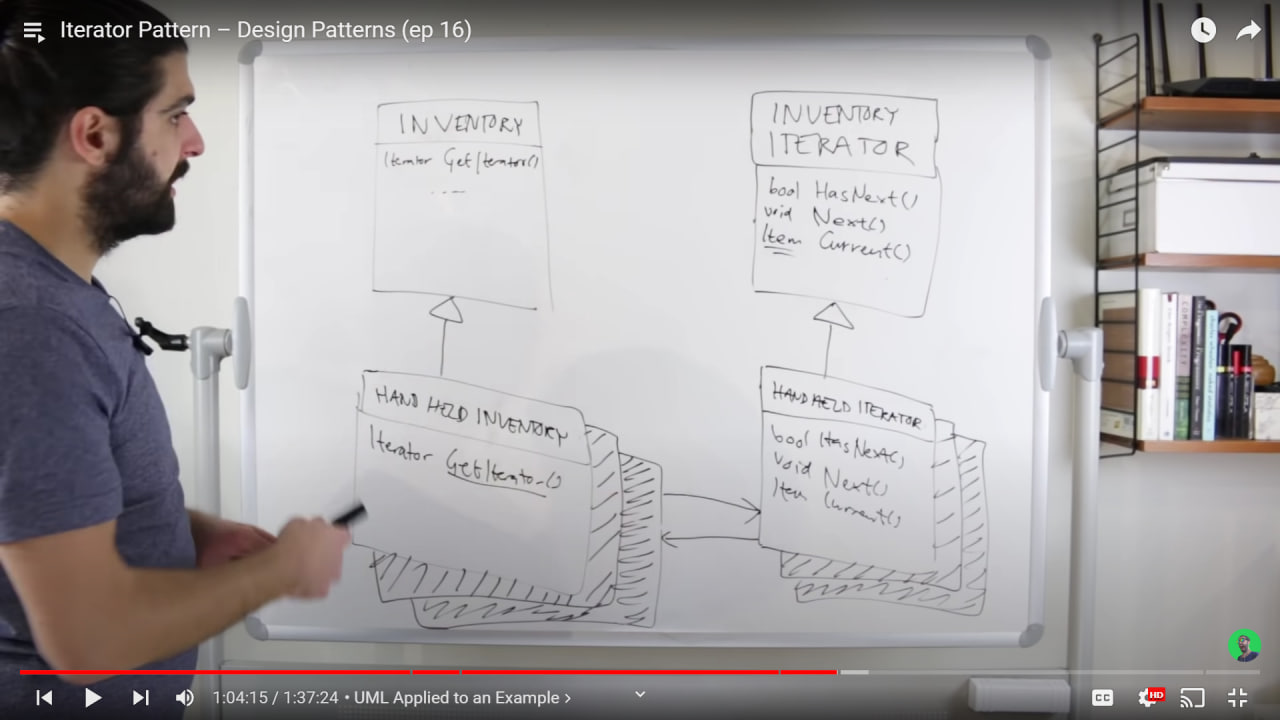 Iterator Pattern – Design Patterns (ep 16)
INVENTORY
Iterator GetIterator()
....
INVENTORY
ITERATOR
bool HasNext()
void Next()
Item Current()
HAND HELD INVENTORY
Iterator GetIterator()
HANDHELD ITERATOR
bool HasNext()
void Next()
Item Current()
COMPLEXITY
1:04:15 / 1:37:24 • UML Applied to an Example ›
CC
HD